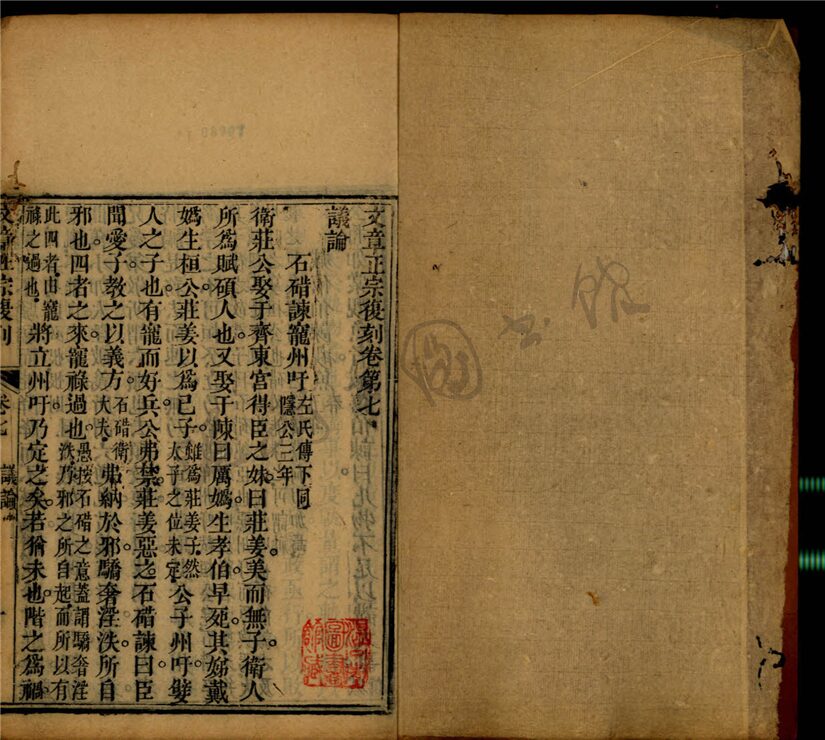 文章正宗復刻卷第七
議論
石碏諫寵州吁左氏傳下同隱公三年
衛莊公娶于齊東宮得臣之妹曰莊姜美而無子衛人
所爲賦碩人也又娶于陳曰厲嬀生孝伯早死其娣戴
嬀生桓公莊姜以爲已子雖爲莊姜子然太子之位未定公子州吁嬖
人之子也有寵而好兵公弗禁莊姜惡之石碏諫曰臣
聞愛子教之以義方石碏衛大夫弗納於邪驕奢淫泆所自
邪也四者之來寵祿過也愚按石碏之意蓋謂驕奢淫泆乃邪之所自起而所以有
此四者由寵祿之過也將立州吁乃定之矣若猶未也階之爲禍
文章正宗復刻 卷七 議論